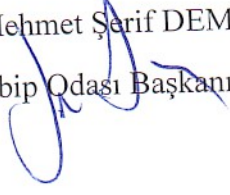 ehmet Şerif DEM
bip Odası Başkanı